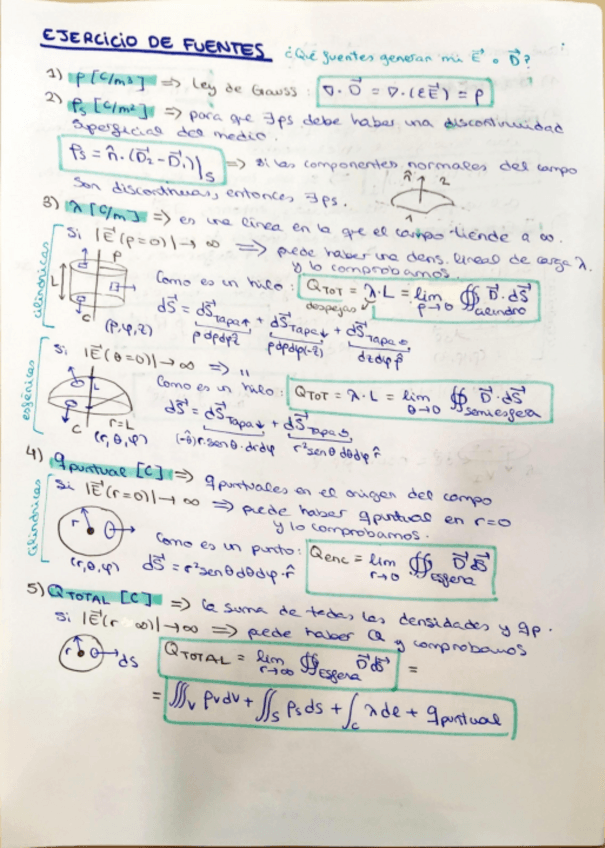 EJERCICIO DE FUENTES ¿Qué fuentes generan mi E⃗ o D⃗?
1) ρ [C/m³] => Ley de Gauss: ∇·D⃗ = ∇·(εE⃗) = ρ
2) ρs [C/m²] => para que ∃ρs debe haber una discontinuidad
superficial del medio.
ρs = n̂·(D⃗₂-D⃗₁)|s => si las componentes normales del campo
son discontinuas, entonces ∃ρs.
n̂ 2
1
3) λ [C/m] => es una línea en la que el campo tiende a ∞.
cilíndricas
Si |E⃗(ρ=0)| → ∞ => puede haber una dens. lineal de carga λ.
y lo comprobamos.
L
ρ
C
(ρ,φ,z)
Como es un hilo: Q_TOT = λ·L = lim ρ→0 ∯cilindro D⃗·dS⃗
despejas
dS⃗ = dS⃗Tapa↑ + dS⃗Tapa↓ + dS⃗Tapa
ρdρdφẑ ρdρdφ(-ẑ) dzdφρ̂
esféricas
Si |E⃗(θ=0)| → ∞ => "
L
C
r=L
(r,θ,φ)
Como es un hilo: Q_TOT = λ·L = lim θ→0 ∯semiesfera D⃗·dS⃗
dS⃗ = dS⃗Tapa↓ + dS⃗Tapa
(-θ̂)r·senθ·drdφ r²senθdθdφ r̂
4) q puntual [C] => q puntuales en el origen del campo
cilíndricas
Si |E⃗(r=0)| → ∞ => puede haber q puntual en r=0
y lo comprobamos.
r
(r,θ,φ)
Como es un punto: Qenc = lim r→0 ∯Esfera D⃗dS⃗
dS⃗ = r²senθdθdφ·r̂
5) Q TOTAL [C] => la suma de todas las densidades y qp.
Si |E⃗(r ∞)| → ∞ => puede haber Q y comprobamos
r
dS
Q TOTAL = lim r→∞ ∯Esfera D⃗dS⃗ =
= ∭v ρvdv + ∬s ρsds + ∫c λdl + q puntual